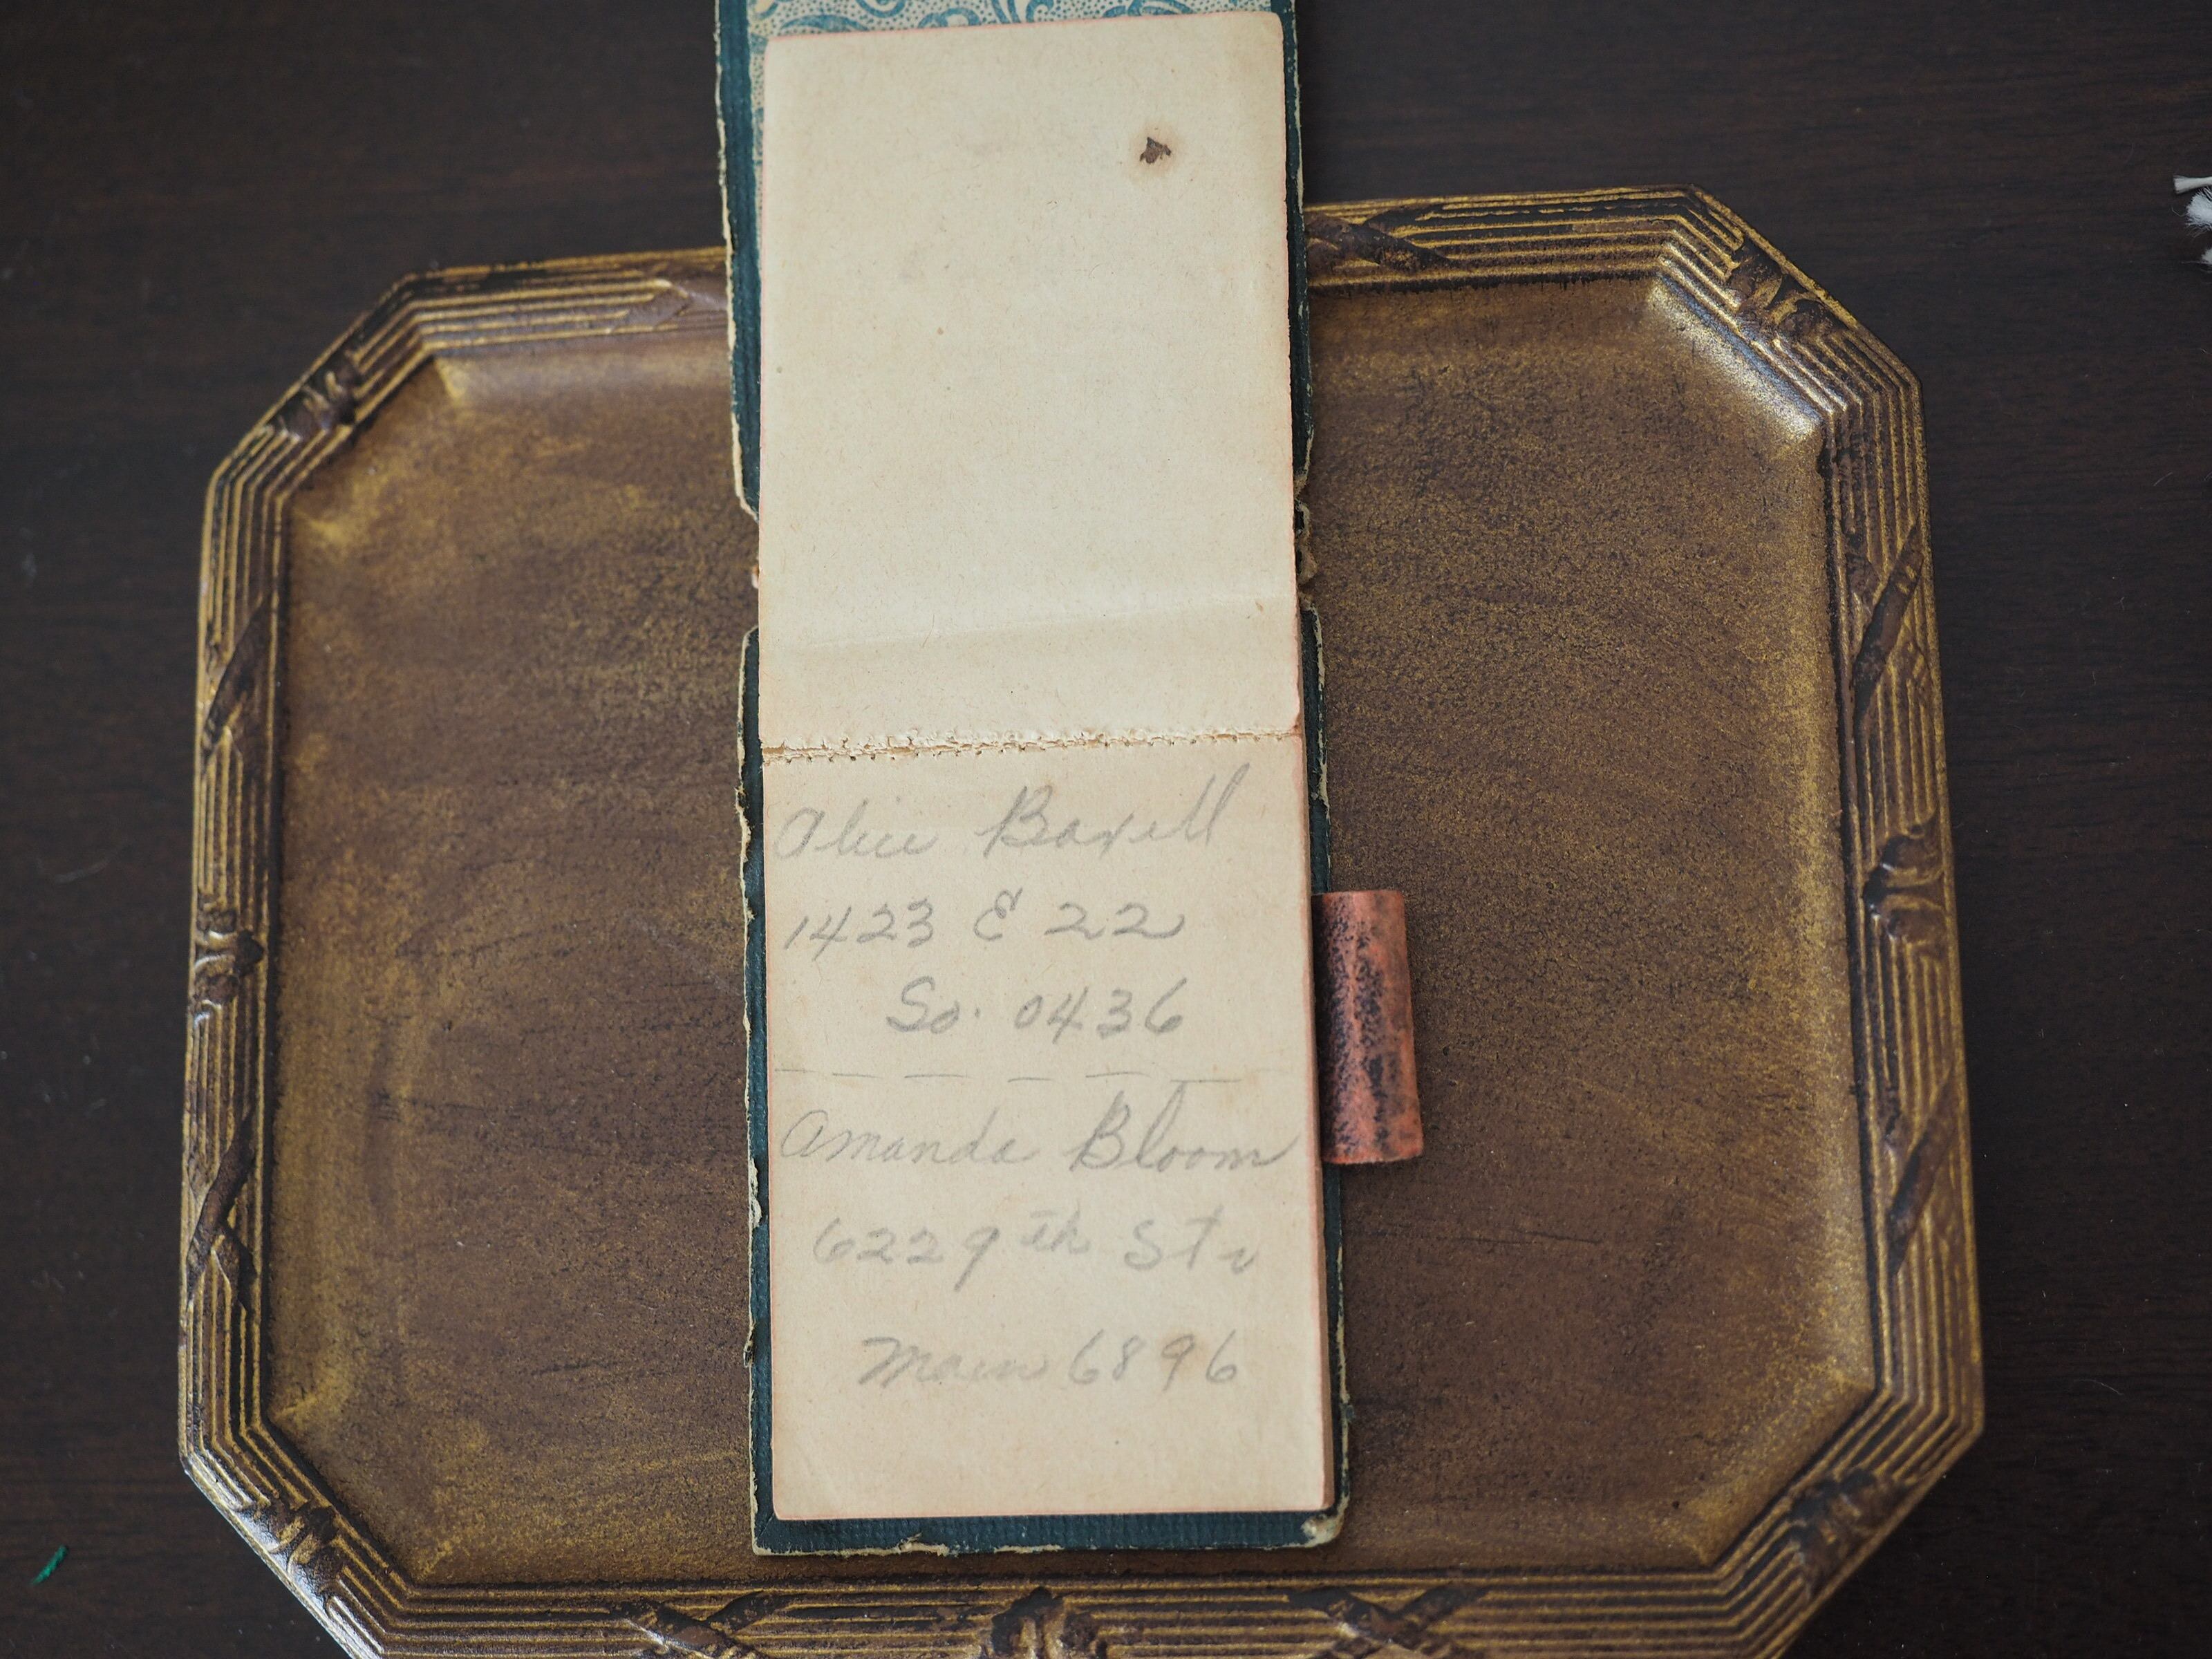 Alice Boxell
1423 E 22
So. 0436
Amanda Bloom
622 9th St
Main 6896